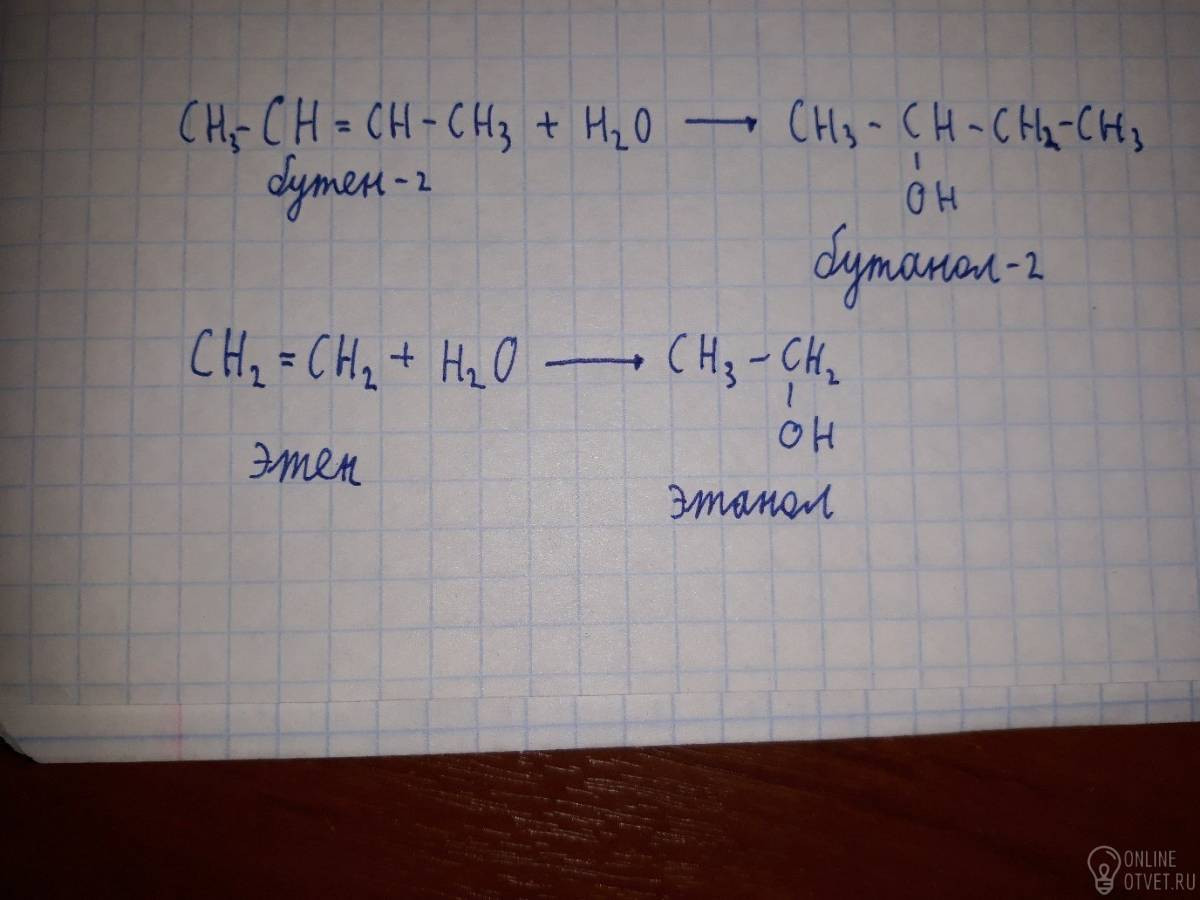 CH₃-CH=CH-CH₃ + H₂O → CH₃-CH-CH₂-CH₃
бутен-2
OH
бутанол-2
CH₂=CH₂ + H₂O → CH₃-CH₂
OH
этен
этанол
ONLINE
OTVET.RU